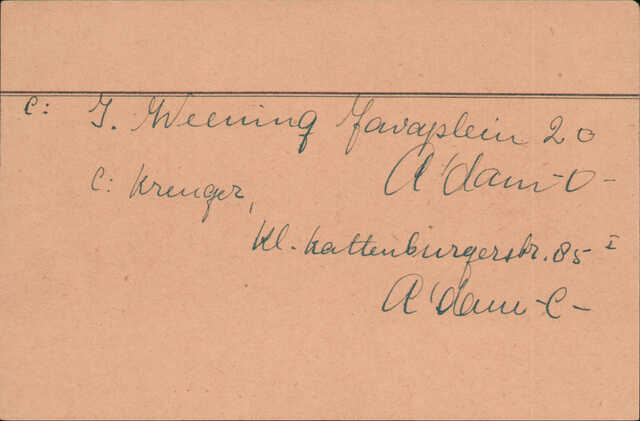 c: J. Weening Javaplein 20
A'dam-O-
C: Kreuger,
Kl. Kattenburgerstr. 85 I
A'dam-C-